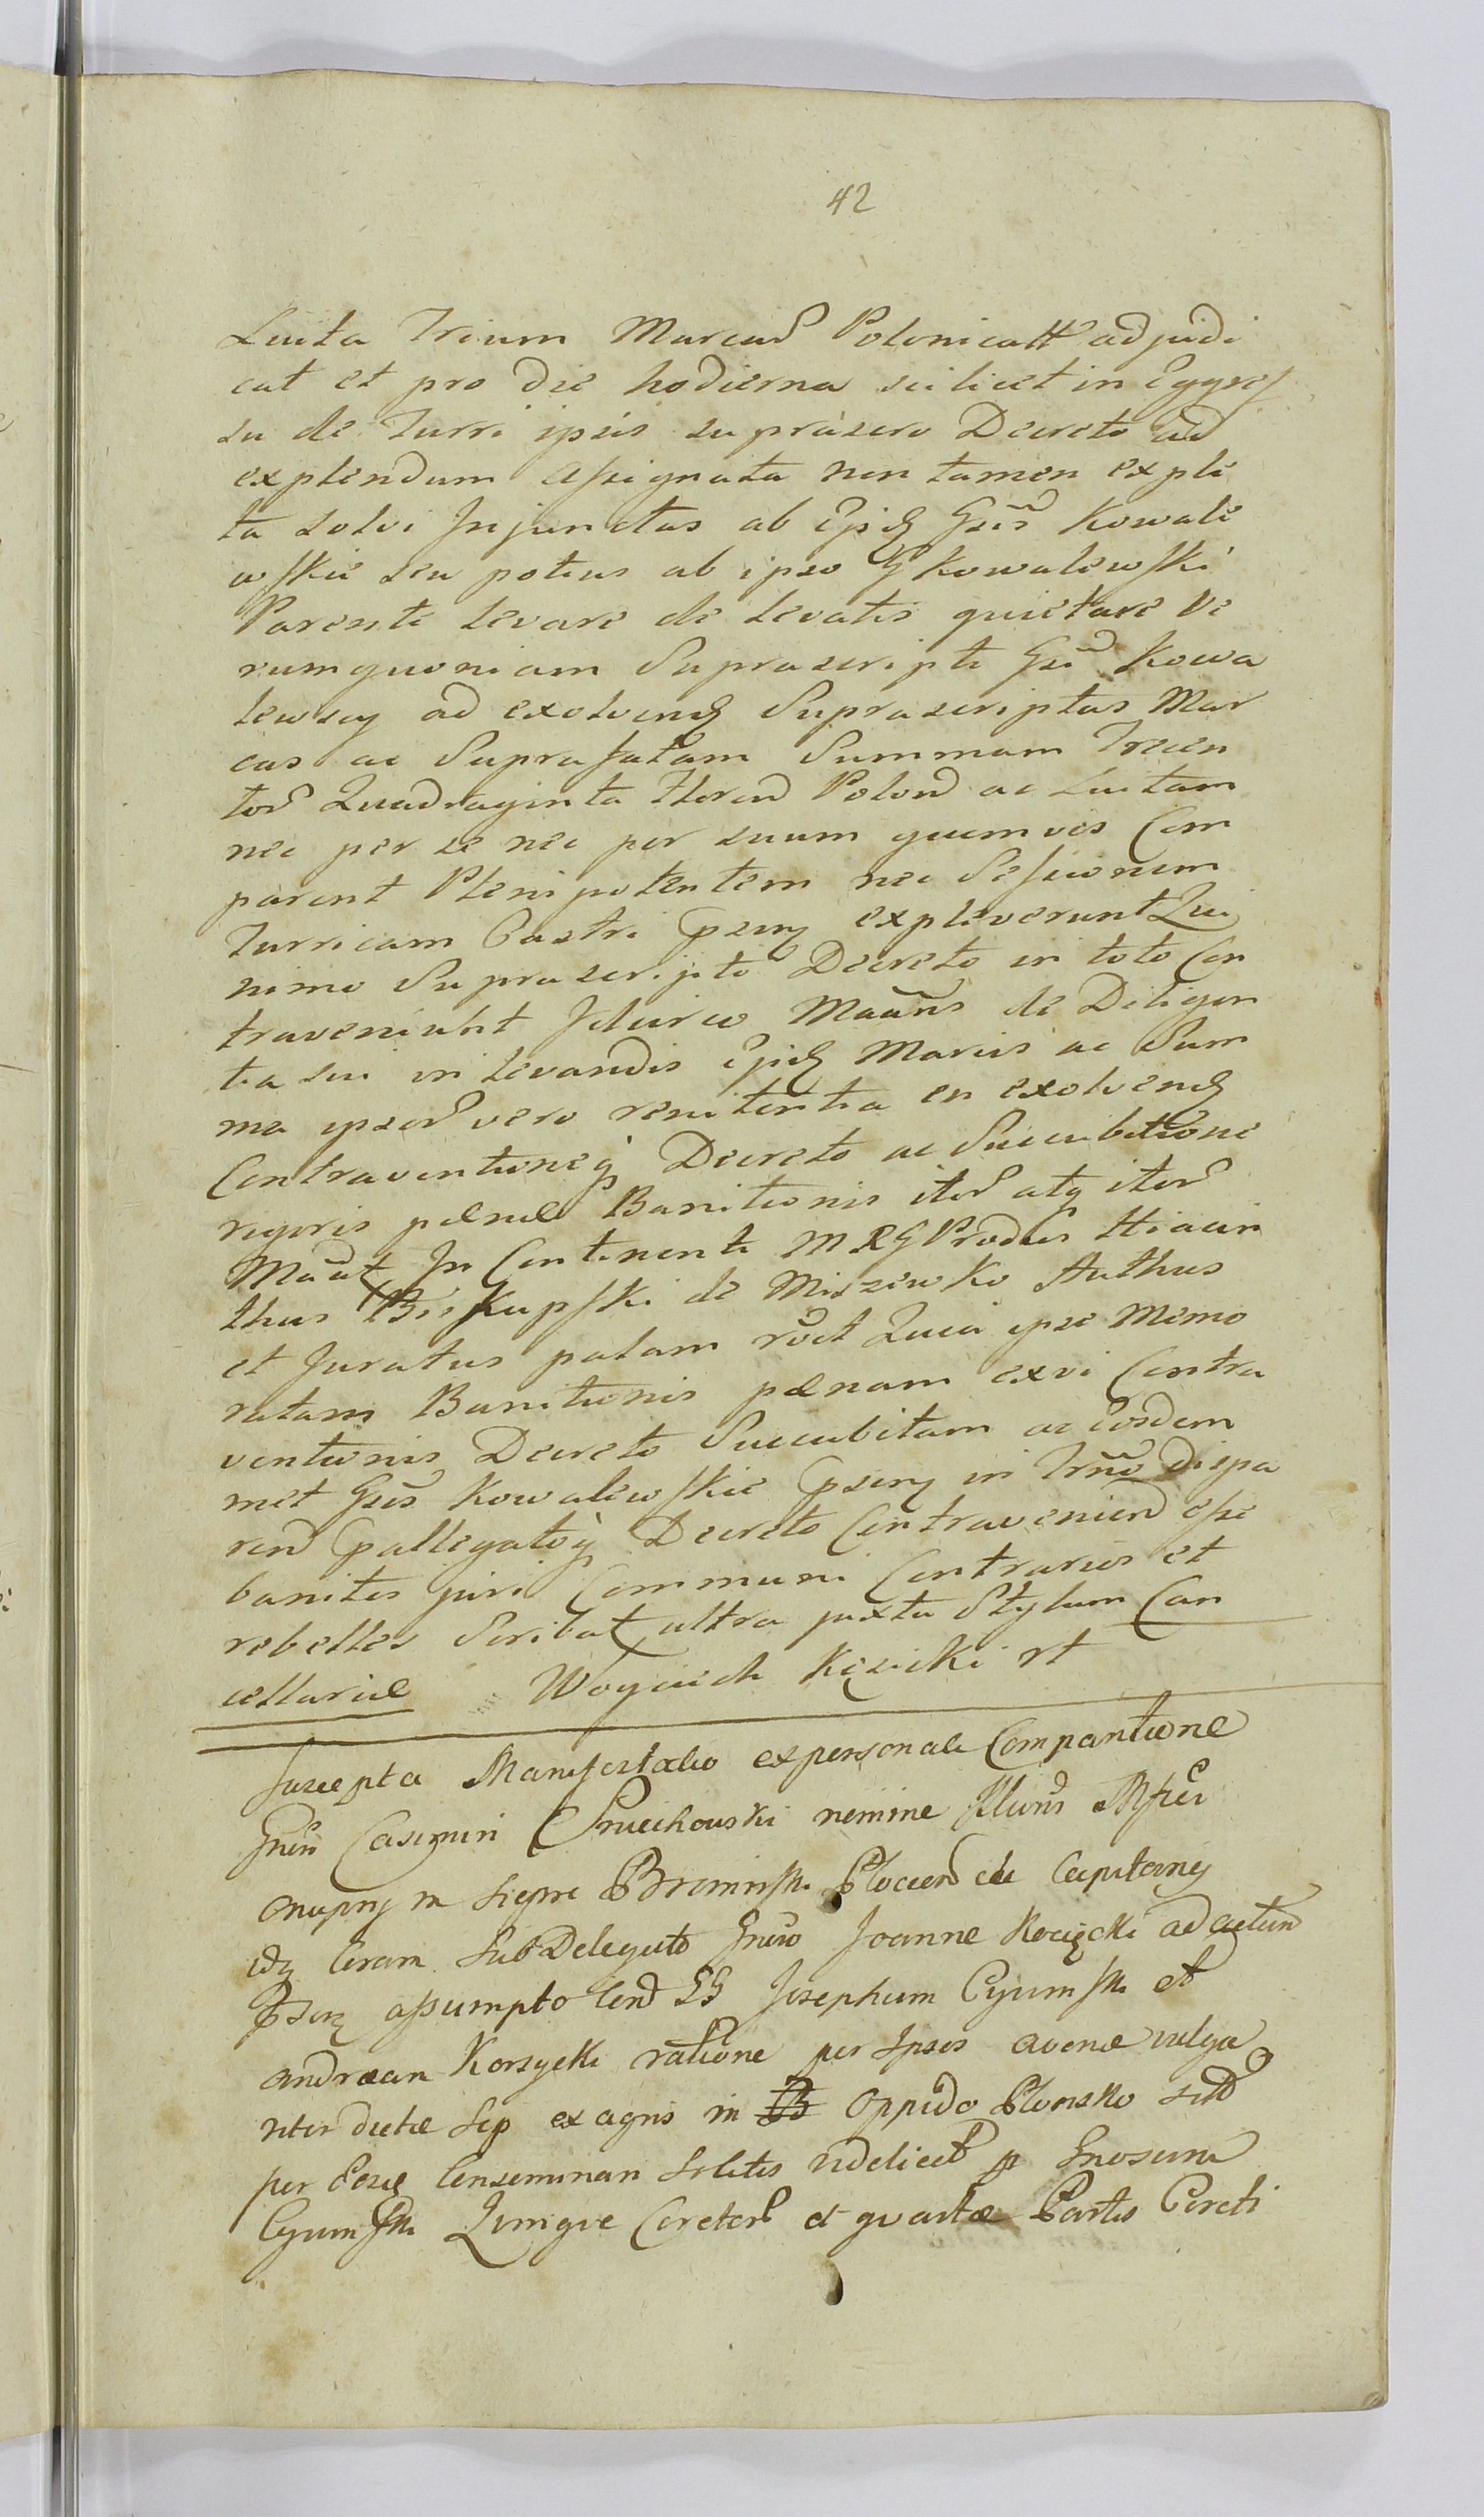 42
Luita Trium Marcar Polonicall adjudi
cat et pro die hodierna scilicet in Egres
su de Turri ipsis supráscro Decreto ad
explendum assignata non tamen exple
ta solvi Injunctas ab Gsis Kowale
wskie seu potius ab ipso G Kowalewski
Parente levare de levatis quietare Ve
rumquoniam Suprascripti Gsi Kowa
lewscy ad exolvend Suprascriptas Mar
cas ac Suprafatam Summam Trecen
tor Quadraginta floren Polon ac Luitam
nec per se nec per suum quemvis Com
parent Plenipotentem nec Sessionem
Turricam Castri psens expleverunt Qui
nimo Suprascripto Decreto in toto Con
traveniunt Idcirco de Diligen
tia sui in levandis Marcis ac Sum
ma ipsor vero renitentia in exolvend
Contraventioneq Decreto ac Succubitione
rigoris pænæ Banitionis iter atq iter
In Continenti M R G Prodiens Hiacin
thus Biskupski de Miszewko Authus
et Juratus palam Quia ipse Memo
ratam Banitionis pænam exvi Contra
ventionis Decreto Succubitam ac Eosdem
met Gsis Kowalewskie psens in Trno dispa
ren pallegatoq Decreto Contravenien esse
banitos juri Communi Contrarios et
rebelles Scribat ultra juxta Stylum Can
cellariæ Woyciech Kęsicki rt
Suscepta Manifestatio expersonali Comparitione
Gnsi Casimiri nemine
Onuprij in Siepre Bromirski Plocen Capitanij
idq Coram SubDelegato Gnso Joanne Kocięcki ad actum
assumpto Josephum Cyumski et
andræam Korzycki ratione per Ipsos avenæ vulga
riter dictæ Sep ex agris in B Oppido Plonsko sitt
per Eosq Conseminari Solitis videlicet p Gnosum
Cyumski Qumque Coretor et quartæ Partis Coreti